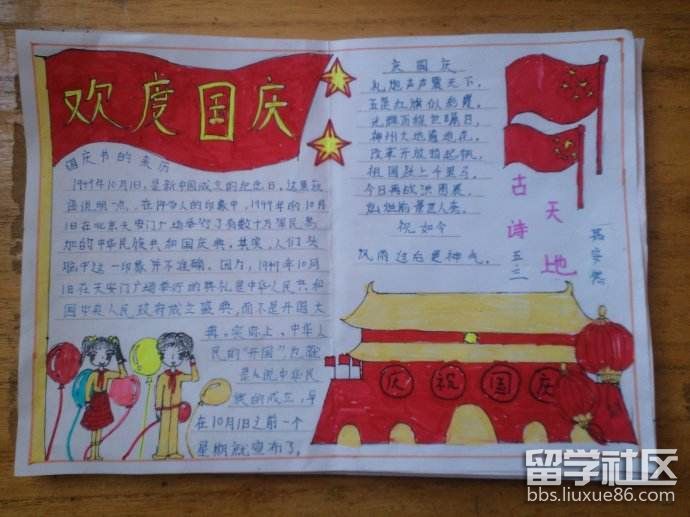 欢度国庆
国庆节的来历
1949年10月1日,是新中国成立的纪念日。这里应
该说明一点,在许多人的印象中,1949年的10月
1日在北京天安门广场举行了有数十万军民参
加的中华人民共和国国庆典。其实,人们头
脑中这一印象并不准确。因为,1949年10月
1日在天安门广场举行的典礼是中华人民共和
国中央人民政府成立盛典,而不是开国大
典。实际上,中华人
民的"开国",也就
是人说中华民
族的成立,早
在10月1日之前一个
星期就宣布了。
国庆
礼炮声声震天下,
五星红旗似彩霞。
神州大地遍地花。
改革开放
祖国跃上千里马。
今日再战洪图展,
祝如今
风雨过后更神气。
古诗
天地
五三
庆祝国庆
留学社区
bbs.liuxue86.com